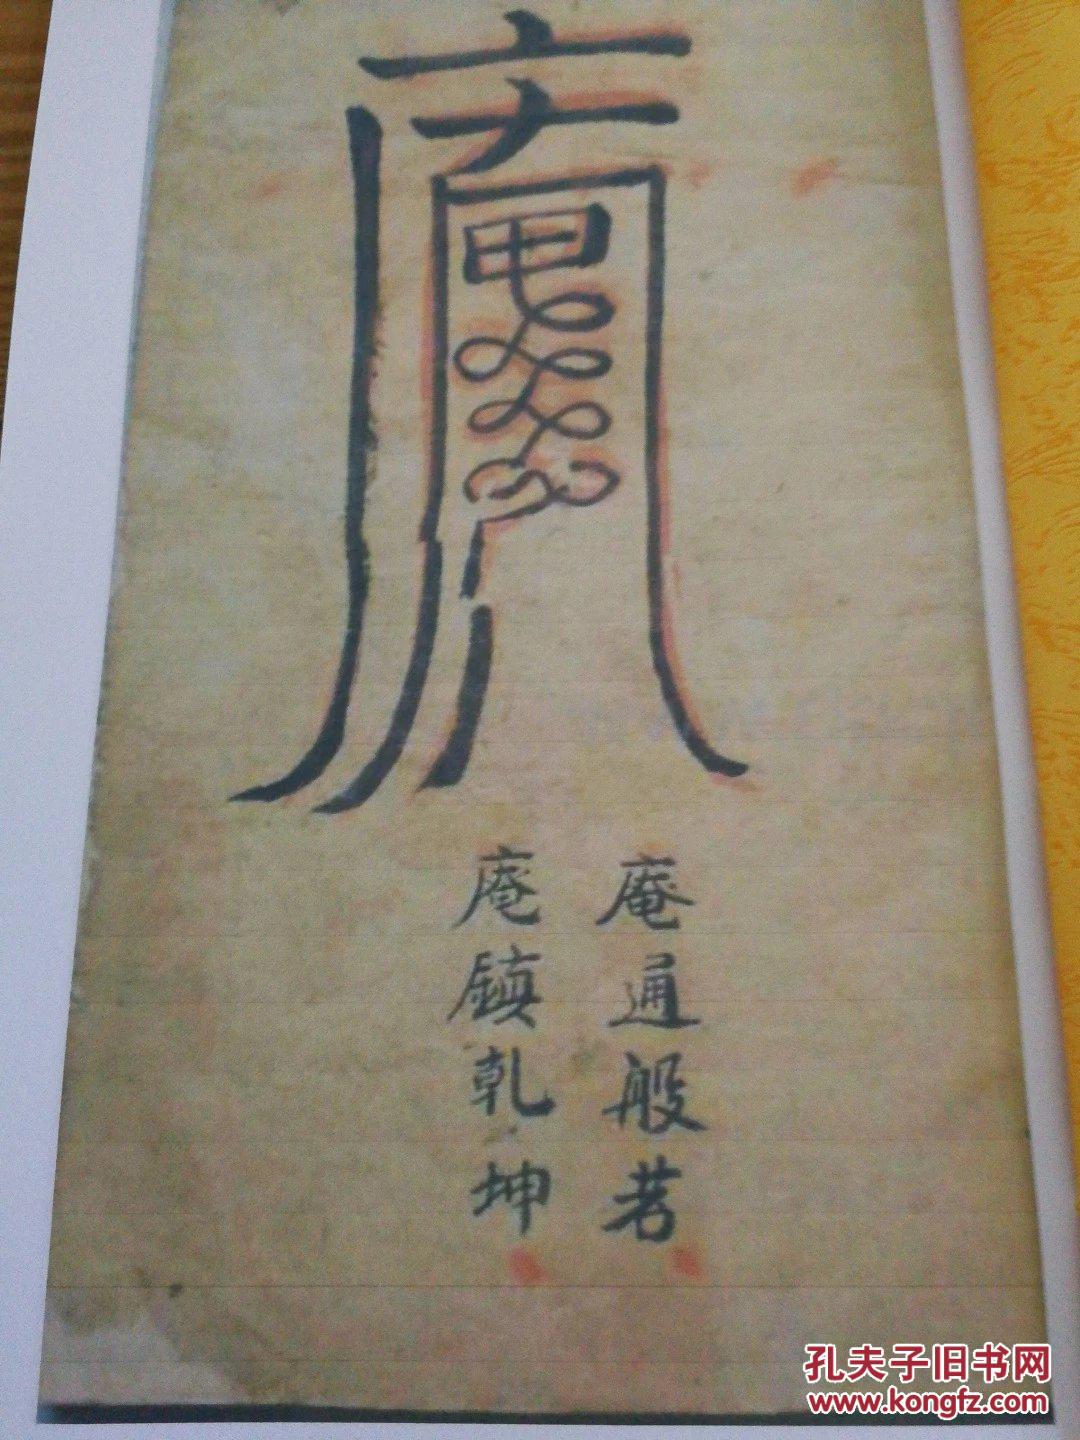 庵通般若
庵鎮乾坤
孔夫子旧书网
www.kongfz.com